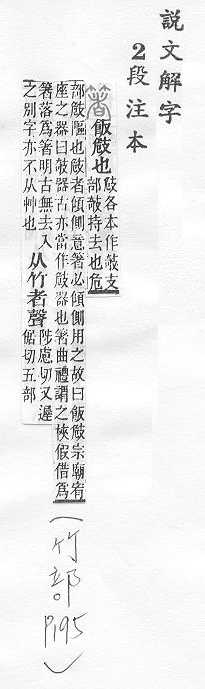 說文解字
2段注本
箸 飯㩻也 㩻各本作攲支
部攲持去也危
部㩻也㩻者傾側意箸必傾側用之故曰飯㩻宗廟宥
座之器曰㩻器古亦當作㩻器也箸曲禮謂之梜假借爲
箸落爲箸明古無去入
之別字亦不从艸也
从竹者聲 陟慮切又遲
倨切五部
(竹部。P195)